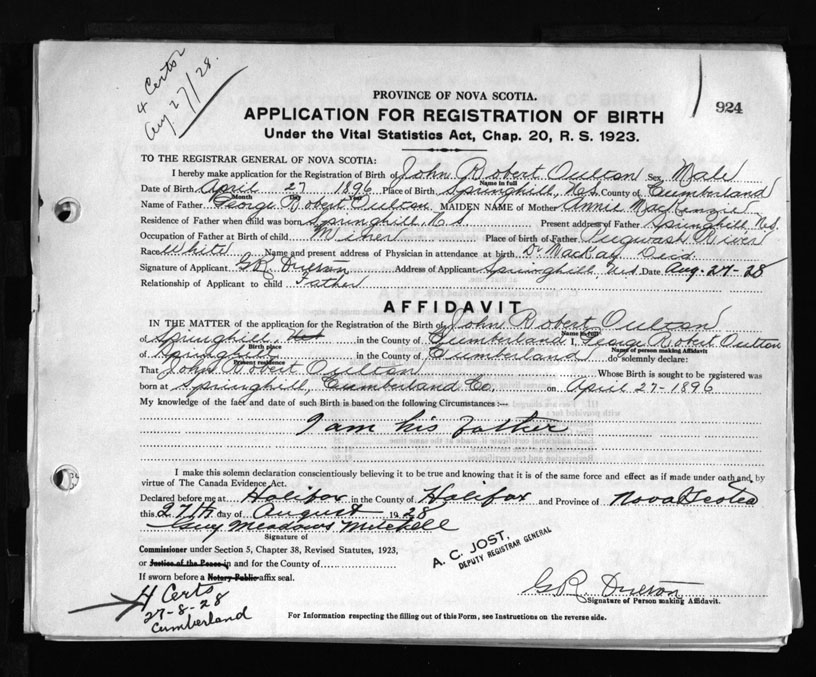 4 Certs
Aug 27/28.
PROVINCE OF NOVA SCOTIA.
924
APPLICATION FOR REGISTRATION OF BIRTH
Under the Vital Statistics Act, Chap. 20, R. S. 1923.
TO THE REGISTRAR GENERAL OF NOVA SCOTIA:
I hereby make application for the Registration of Birth of John Robert Oulton Sex Male
Name in full
Date of Birth April 27 1896 Place of Birth Springhill, N.S. County of Cumberland
Month Day Year
Name of Father George Robert Oulton MAIDEN NAME of Mother Annie MacKenzie
Residence of Father when child was born Springhill, N.S. Present address of Father Springhill N.S.
Occupation of Father at Birth of child Miner Place of birth of Father Pugwash River
Race White Name and present address of Physician in attendance at birth Dr MacKay Dec'd.
Signature of Applicant G R. Oulton Address of Applicant Springhill, N.S. Date Aug-27-28
Relationship of Applicant to child Father
AFFIDAVIT
IN THE MATTER of the application for the Registration of the Birth of John Robert Oulton
Name in full
of Springhill, in the County of Cumberland I, George Robert Oulton
Birth place Name of person making Affidavit
of Springhill in the County of Cumberland do solemnly declare:
Present residence
That John Robert Oulton Whose Birth is sought to be registered was
born at Springhill, Cumberland Co. on April 27-1896
My knowledge of the fact and date of such Birth is based on the following Circumstances:—
I am his father
I make this solemn declaration conscientiously believing it to be true and knowing that it is of the same force and effect as if made under oath and by
virtue of The Canada Evidence Act.
Declared before me at Halifax in the County of Halifax and Province of Nova Scotia
this 27th day of August 1928
Guy Meadows Mitchell
Signature of
Commissioner under Section 5, Chapter 38, Revised Statutes, 1923,
or Justice of the Peace in and for the County of
If sworn before a Notary Public affix seal.
A. C. JOST,
DEPUTY REGISTRAR GENERAL
G R. Oulton
Signature of Person making Affidavit.
4 Certs
27-8-28
Cumberland
For Information respecting the filling out of this Form, see Instructions on the reverse side.